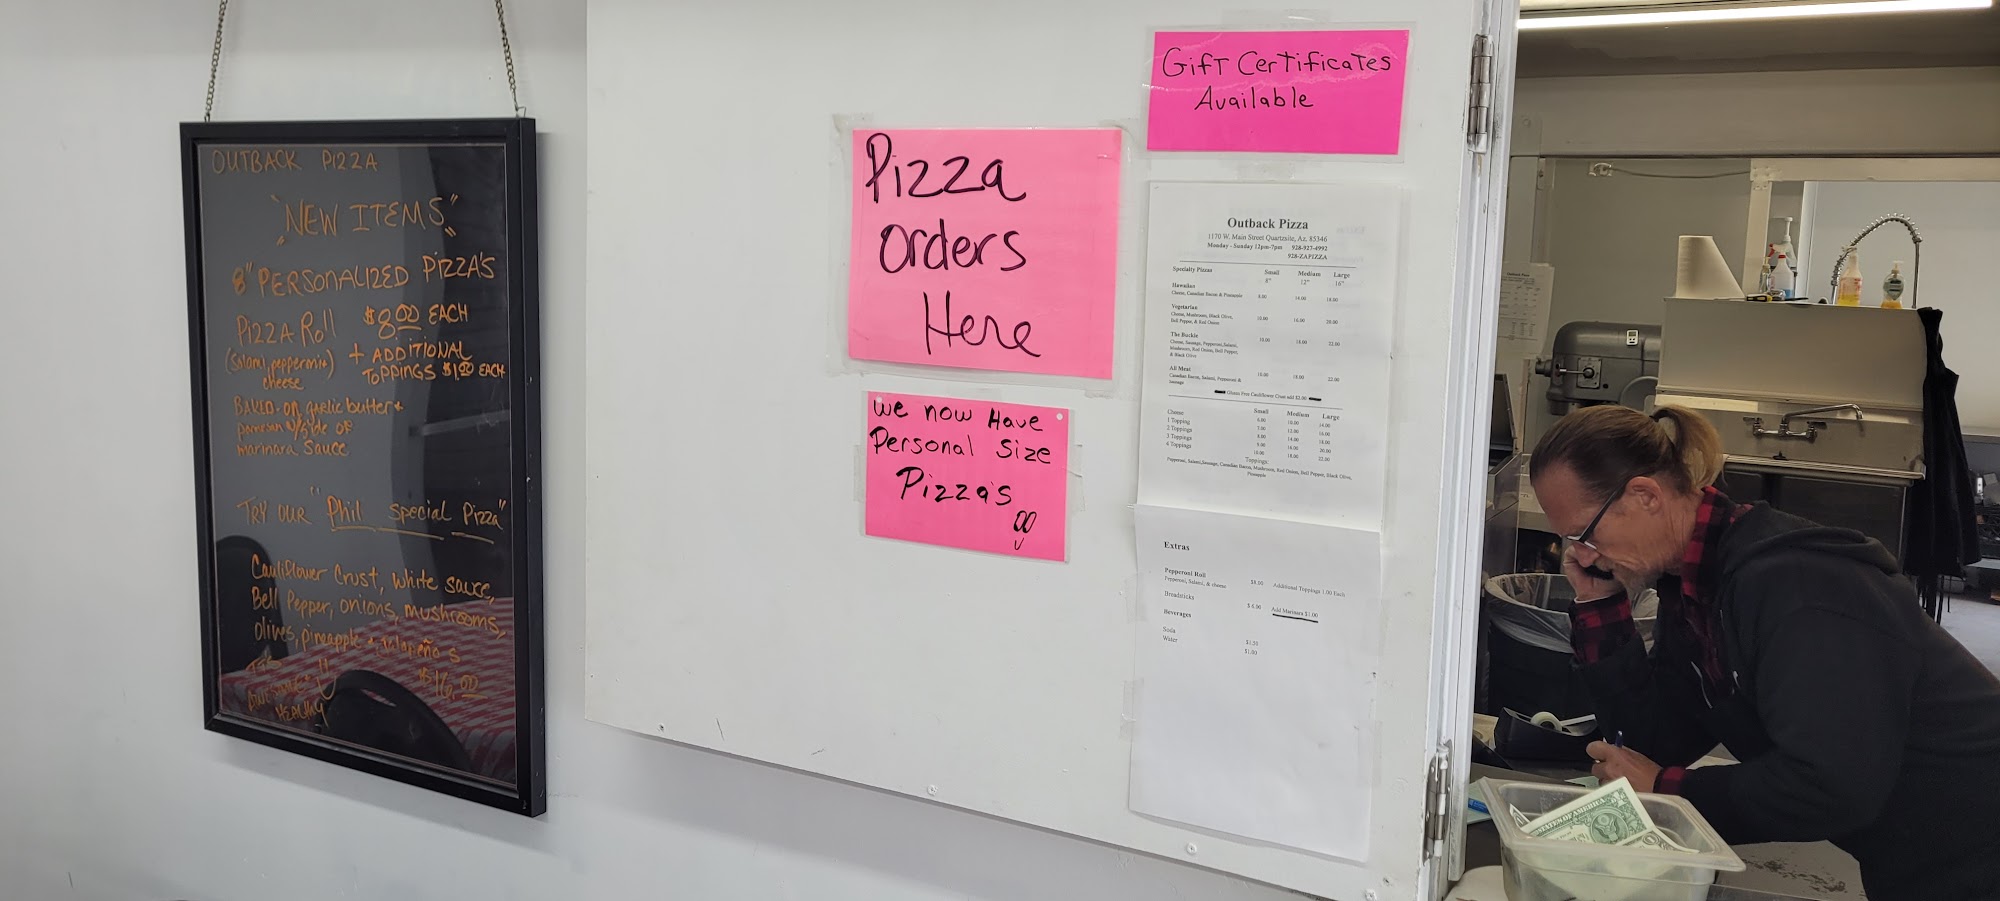 OUTBACK PIZZA
"NEW ITEMS"
8" PERSONALIZED PIZZA'S
PIZZA ROLL
(Salami, peppermint
cheese)
$8.00 EACH
+ ADDITIONAL
TOPPINGS $1.00 EACH
BAKED on garlic butter +
parmesan w/side of
marinara sauce
TRY OUR "Phil special Pizza"
Cauliflower Crust, white sauce,
Bell Pepper, onions, mushrooms,
olives, pineapple + jalapeños
$16.00
AWESOME +
HEALTHY
Pizza
Orders
Here
We now Have
Personal Size
Pizza's
Gift Certificates
Available
Outback Pizza
1170 W. Main Street Quartzsite, Az. 85346
Monday - Sunday 12pm-7pm 928-927-4992
928-ZAPIZZA
Specialty Pizzas Small Medium Large
8" 12" 16"
Hawaiian
Cheese, Canadian Bacon & Pineapple 8.00 14.00 18.00
Vegetarian
Cheese, Mushroom, Black Olive, 10.00 16.00 20.00
Bell Pepper, & Red Onion
The Buckle
Cheese, Sausage, Pepperoni, Salami, 10.00 18.00 22.00
Mushroom, Red Onion, Bell Pepper,
& Black Olive
All Meat
Canadian Bacon, Salami, Pepperoni & 10.00 18.00 22.00
Sausage
Gluten Free Cauliflower Crust add $2.00
Small Medium Large
Cheese 6.00 10.00 14.00
1 Topping 7.00 12.00 16.00
2 Toppings 8.00 14.00 18.00
3 Toppings 9.00 16.00 20.00
4 Toppings 10.00 18.00 22.00
Toppings:
Pepperoni, Salami, Sausage, Canadian Bacon, Mushroom, Red Onion, Bell Pepper, Black Olive,
Pineapple
Extras
Pepperoni Roll $8.00 Additional Toppings 1.00 Each
Pepperoni, Salami, & cheese
Breadsticks $ 6.00 Add Marinara $1.00
Beverages
Soda $1.50
Water $1.00
Outback Pizza
STATES OF AMERICA